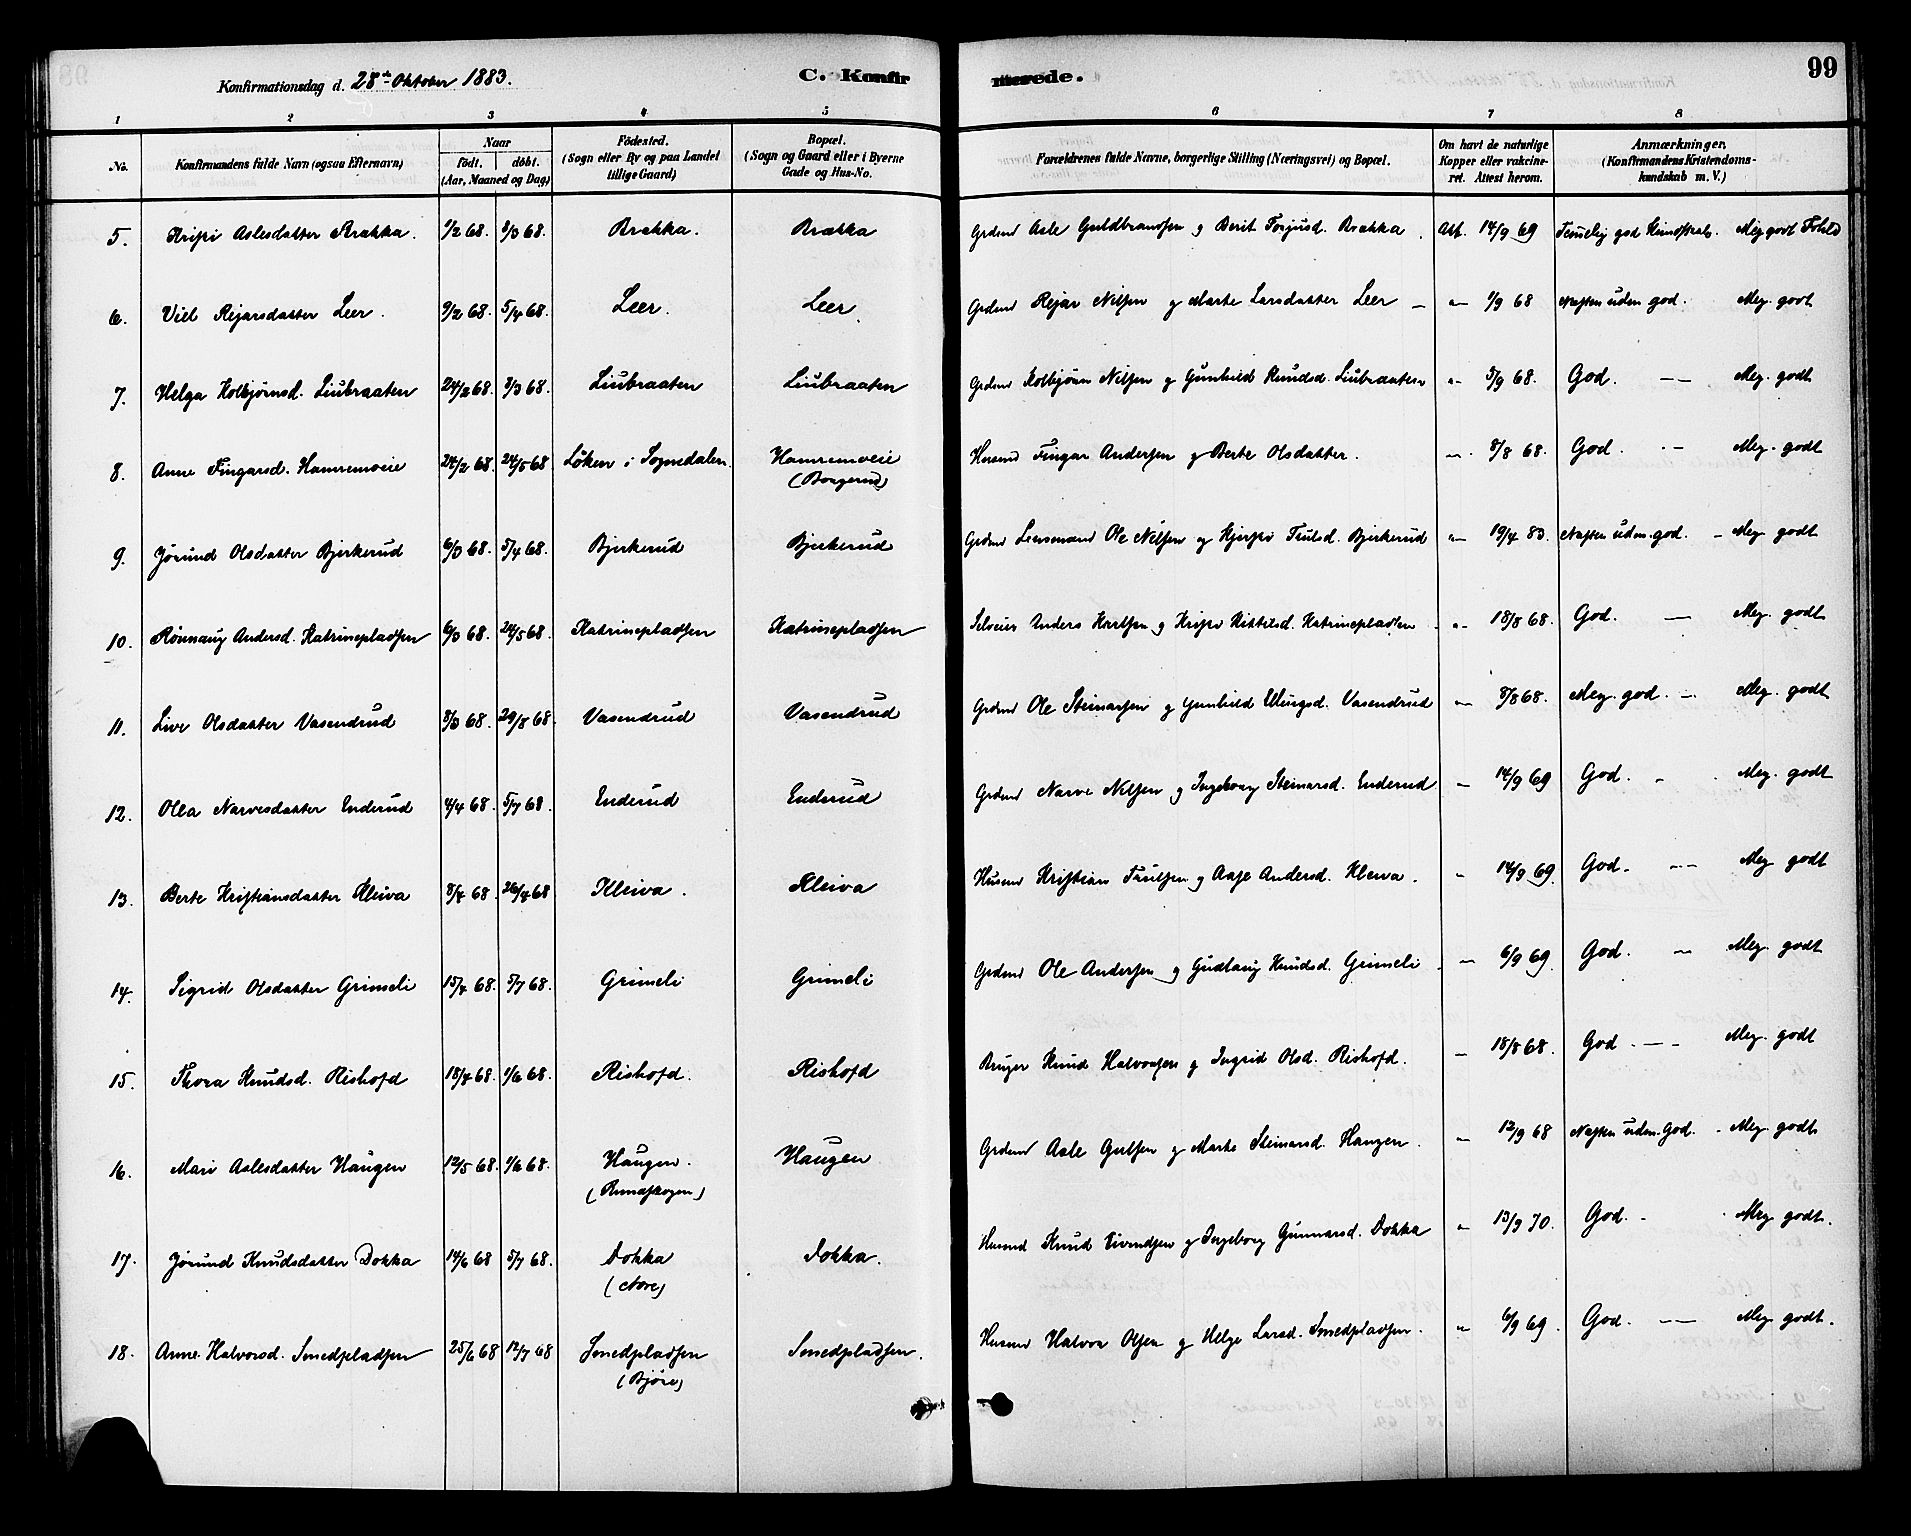 Konfirmationsdag d. 28de Oktober 1883. C. Konfirmerede. 99
1 2 3 4 5 6 7 8
No. Konfirmandens fulde Navn (ogsaa Efternavn) Naar födt. döbt. (Aar, Maaned og Dag) Födested. (Sogn eller By og paa Landet tillige Gaard) Bopæl. (Sogn og Gaard eller i Byerne Gade og Hus-No. Forældrenes fulde Navne, borgerlige Stilling (Næringsvei) og Bopæl. Om havt de naturlige Kopper eller vakcineret. Attest herom. Anmærkninger. (Konfirmandens Kristendomskundskab m. V.)
5. Aslesdatter Brækka. 1/2 68. 8/3 68. Brækka. Brækka Grdmd Asle Guldbrandsen og Berit Torjusd. Brækka. Att. 14/9 69 Temelig god Kundskab. Meg godt Fohld
6. Viel Rejarsdatter Leer. 9/2 68. 5/4 68. Leer. Leer Grdmd Rejar Nilsen og Marte Larsdatter Leer — " 1/9 68 Næsten udm. god. Meg. godt
7. Helga Kolbjørnsd. Liubraaten 24/2 68. 8/3 68. Liubraaten Liubraaten Grdmd Kolbjörn Nilsen og Gunhild Knudsd. Liubraaten " 5/9 68. God. — Meg. godt
8. Anne Fingarsd. Hamremoeie 24/2 68. 24/5 68 Löken i Sognedalen. Hamremoeie Husmd Fingar Andersen og Berte Olsdatter. " 8/8 68. God. — Meg. godt
9. Jørund Olsdatter Bjerkerud 6/3 68. 5/4 68. Bjerkerud Bjerkerud Grdmd Lensmand Ole Nilsen og Trulsd. Bjerkerud " 19/4 83. Næsten udm. god. — Meg. godt
10. Rönnaug Andersd. Katrinepladsen 6/3 68. 24/5 68. Katrinepladsen Katrinepladsen Selveier Anders og Kittilsd. Katrinepladsen " 18/8 68. God. — Meg. godt
11. Live Olsdatter Vasendrud 8/3 68. 29/8 68 Vasendrud Vasendrud Grdmd Ole Steinarsen og Gunhild Vasendrud " 8/8 68. Meg. god. — Meg. godt
12. Olea Narvesdatter Enderud 4/4 68. 5/7 68. Enderud Enderud Grdmd Narve Nilsen og Ingeborg Steinarsd. Enderud " 14/9 69 God. Meg. godt
13. Berte Kristiansdatter Kleiva 8/4 68. 26/4 68 Kleiva. Kleiva Husmd Kristian Trulsen og Aase Andersd. Kleiva. " 14/9 69. God. — Meg godt
14. Sigrid Olsdatter Grimeli 15/4 68. 5/7 68. Grimeli Grimeli Grdmd Ole Andersen og Gudlaug Knudsd. Grimeli " 6/9 69. God. — Meg. godt
15. Thora Knudsd. Rishofd 18/4 68. 1/6 68. Rishofd. Rishofd Bruger Knud Halvorsen og Ingrid Olsd. Rishofd. " 18/8 68. God — Meg. godt
16. Mari Aslesdatter Haugen 12/5 68. 1/6 68. Haugen. Haugen Grdmd Asle Gulsen og Marte Steinarsd. Haugen. " 12/9 68 Næsten udm. god. Meg. godt
17. Jørund Knudsdatter Dokka 14/6 68 5/7 68. Dokka (Nore) Dokka. Husmd Knud Eivendsen og Ingeborg Gunnarsd. Dokka " 13/9 70. God. Meg godt.
18. Anne Halvorsd. Smedpladsen 25/6 68 12/7 68 Smedpladsen (Björe) Smedpladsen. Husmd Halvor Olsen og Helge Larsd. Smedpladsen. " 6/9 69. God. — Meg godt.